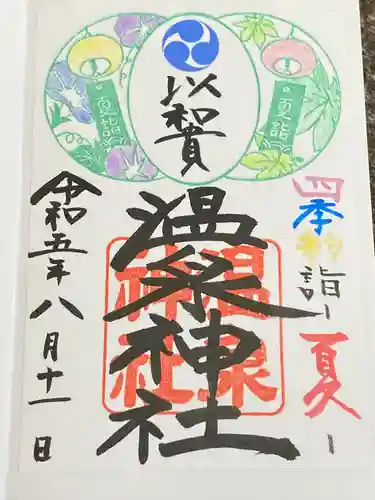 四季彩詣 -夏-
夏詣
以和貴
夏詣
温泉神社
温泉神社
令和五年八月十一日